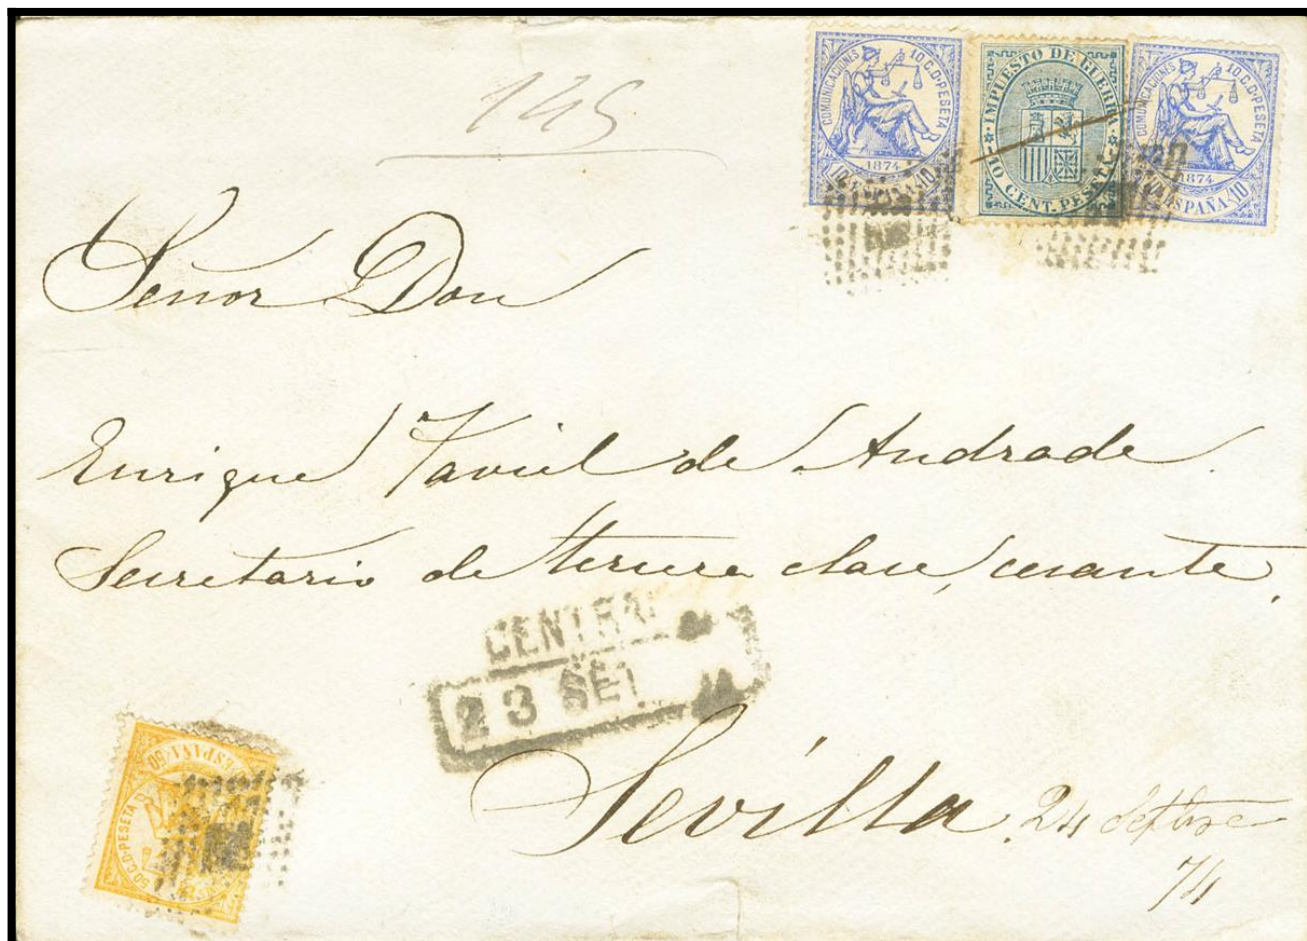 145
COMUNICACIONES 10 C. DE PESETA
1874
10 ESPAÑA 10
IMPUESTO DE GUERRA
10 CENT. PESETA
COMUNICACIONES 10 C. DE PESETA
1874
ESPAÑA 10
Señor Don
Enrique Taviel de Andrade.
Secretario de tercera clase, cesante.
CENTRAL
23 SET
Sevilla. 24 Setbre
74
ESPAÑA 50
50 C. DE PESETA